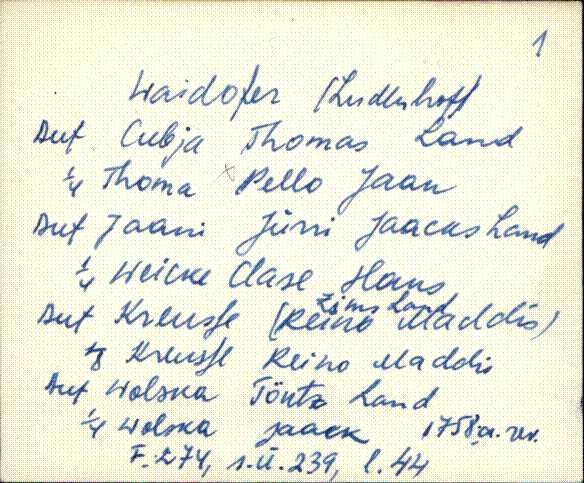 1
Waidofer (Ludenhoff)
Auf Cubja Thomas Land
1/4 Thoma x Pello Jaan
Auf Jaani Jürri Jaacks Land
1/4 Weicke Clase Hans
Zims Land
Auf Kreusse (Reino Maddis)
1/8 Kreusse Reino Maddis
Auf Wolska Töntz Land
1/4 Wolska Jaack 1758.a. rev.
F. 274, s.ü. 239, l. 44